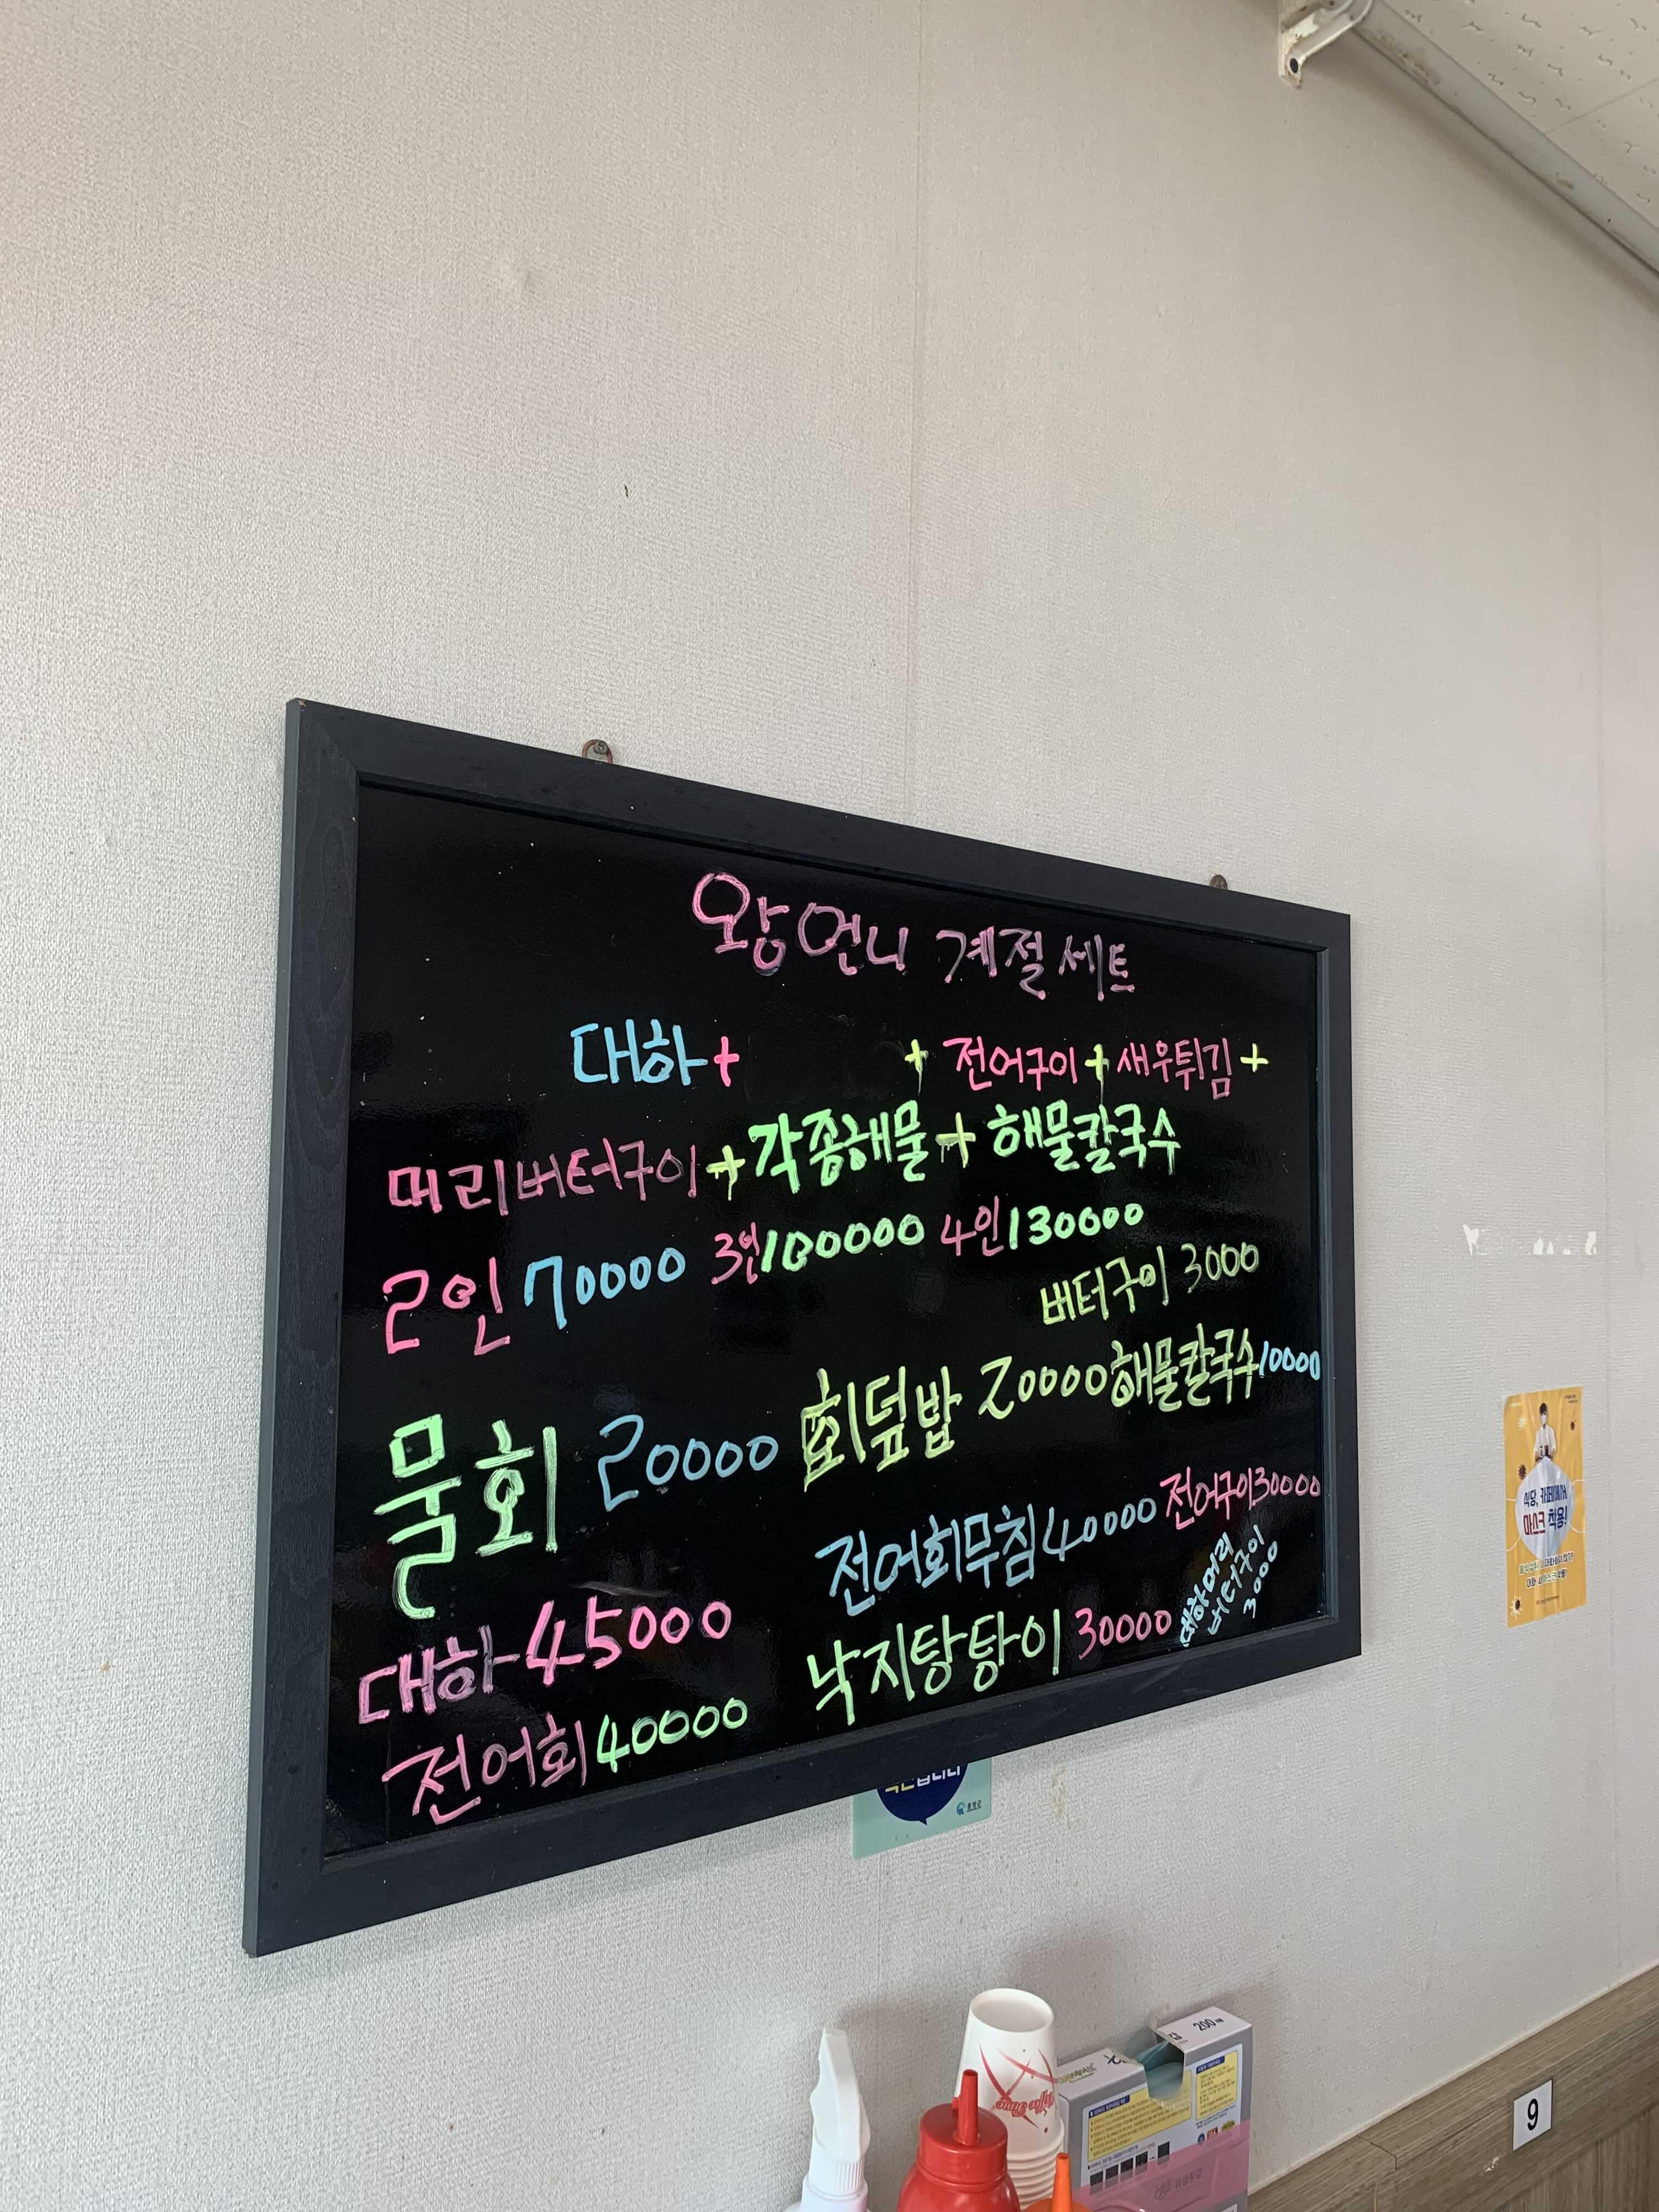 왕언니 계절세트
대하+ + 전어구이+새우튀김+
머리버터구이+각종해물+해물칼국수
2인 70000 3인 100000 4인 130000
버터구이 3000
물회 20000 회덮밥 20000 해물칼국수 10000
전어회무침 40000 전어구이 30000
대하 45000 낙지탕탕이 30000
대하머리
버터구이
3000
전어회 40000
식당, 카페에서
마스크 착용!
200매
9